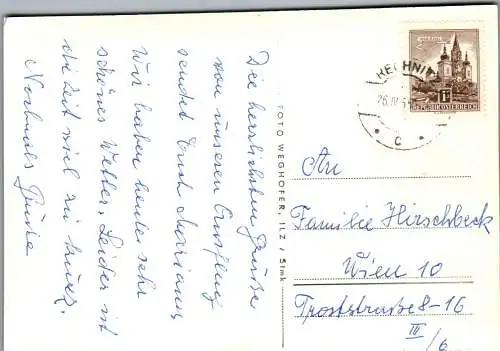 Die herzlichsten Grüße
von unserem Ausflug
sendet Euch Mariann.
Wir haben heute sehr
schönes Wetter, Leider ist
die Zeit viel zu kurz.
Nochmals Grüße
FOTO WEGHOFER, ILZ / Stmk
MARIAZELL
1S
REPUBLIK ÖSTERREICH
RECHNI
26.IV.5
c
An
Familie Hirschbeck
Wien 10
Troststraße 8-16
III/6